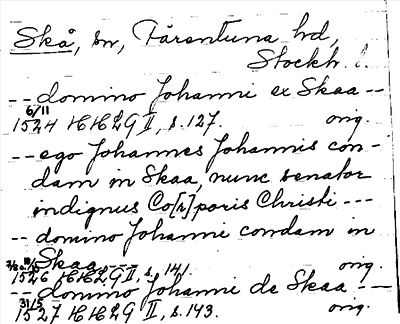 Skå, sn, Färentuna hd,
Stockh. l.
-- domino Johanni ex Skaa --
6/11
1524 HHLG II, s. 127. orig.
-- ego Johannes Johannis con-
dam in Skaa, nunc senator
indignus Co[r]poris Christi ---
-- domino Johanni condam in
Skaa --
1526 HHLG II, s. 141. orig.
-- domino Johanni de Skaa --
31/5
1527 HHLG II, s. 143. orig.